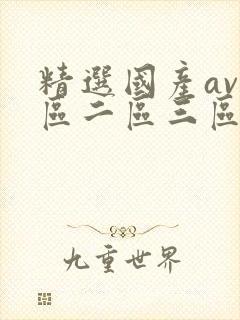 精選國產av
區二區三區
九重世界